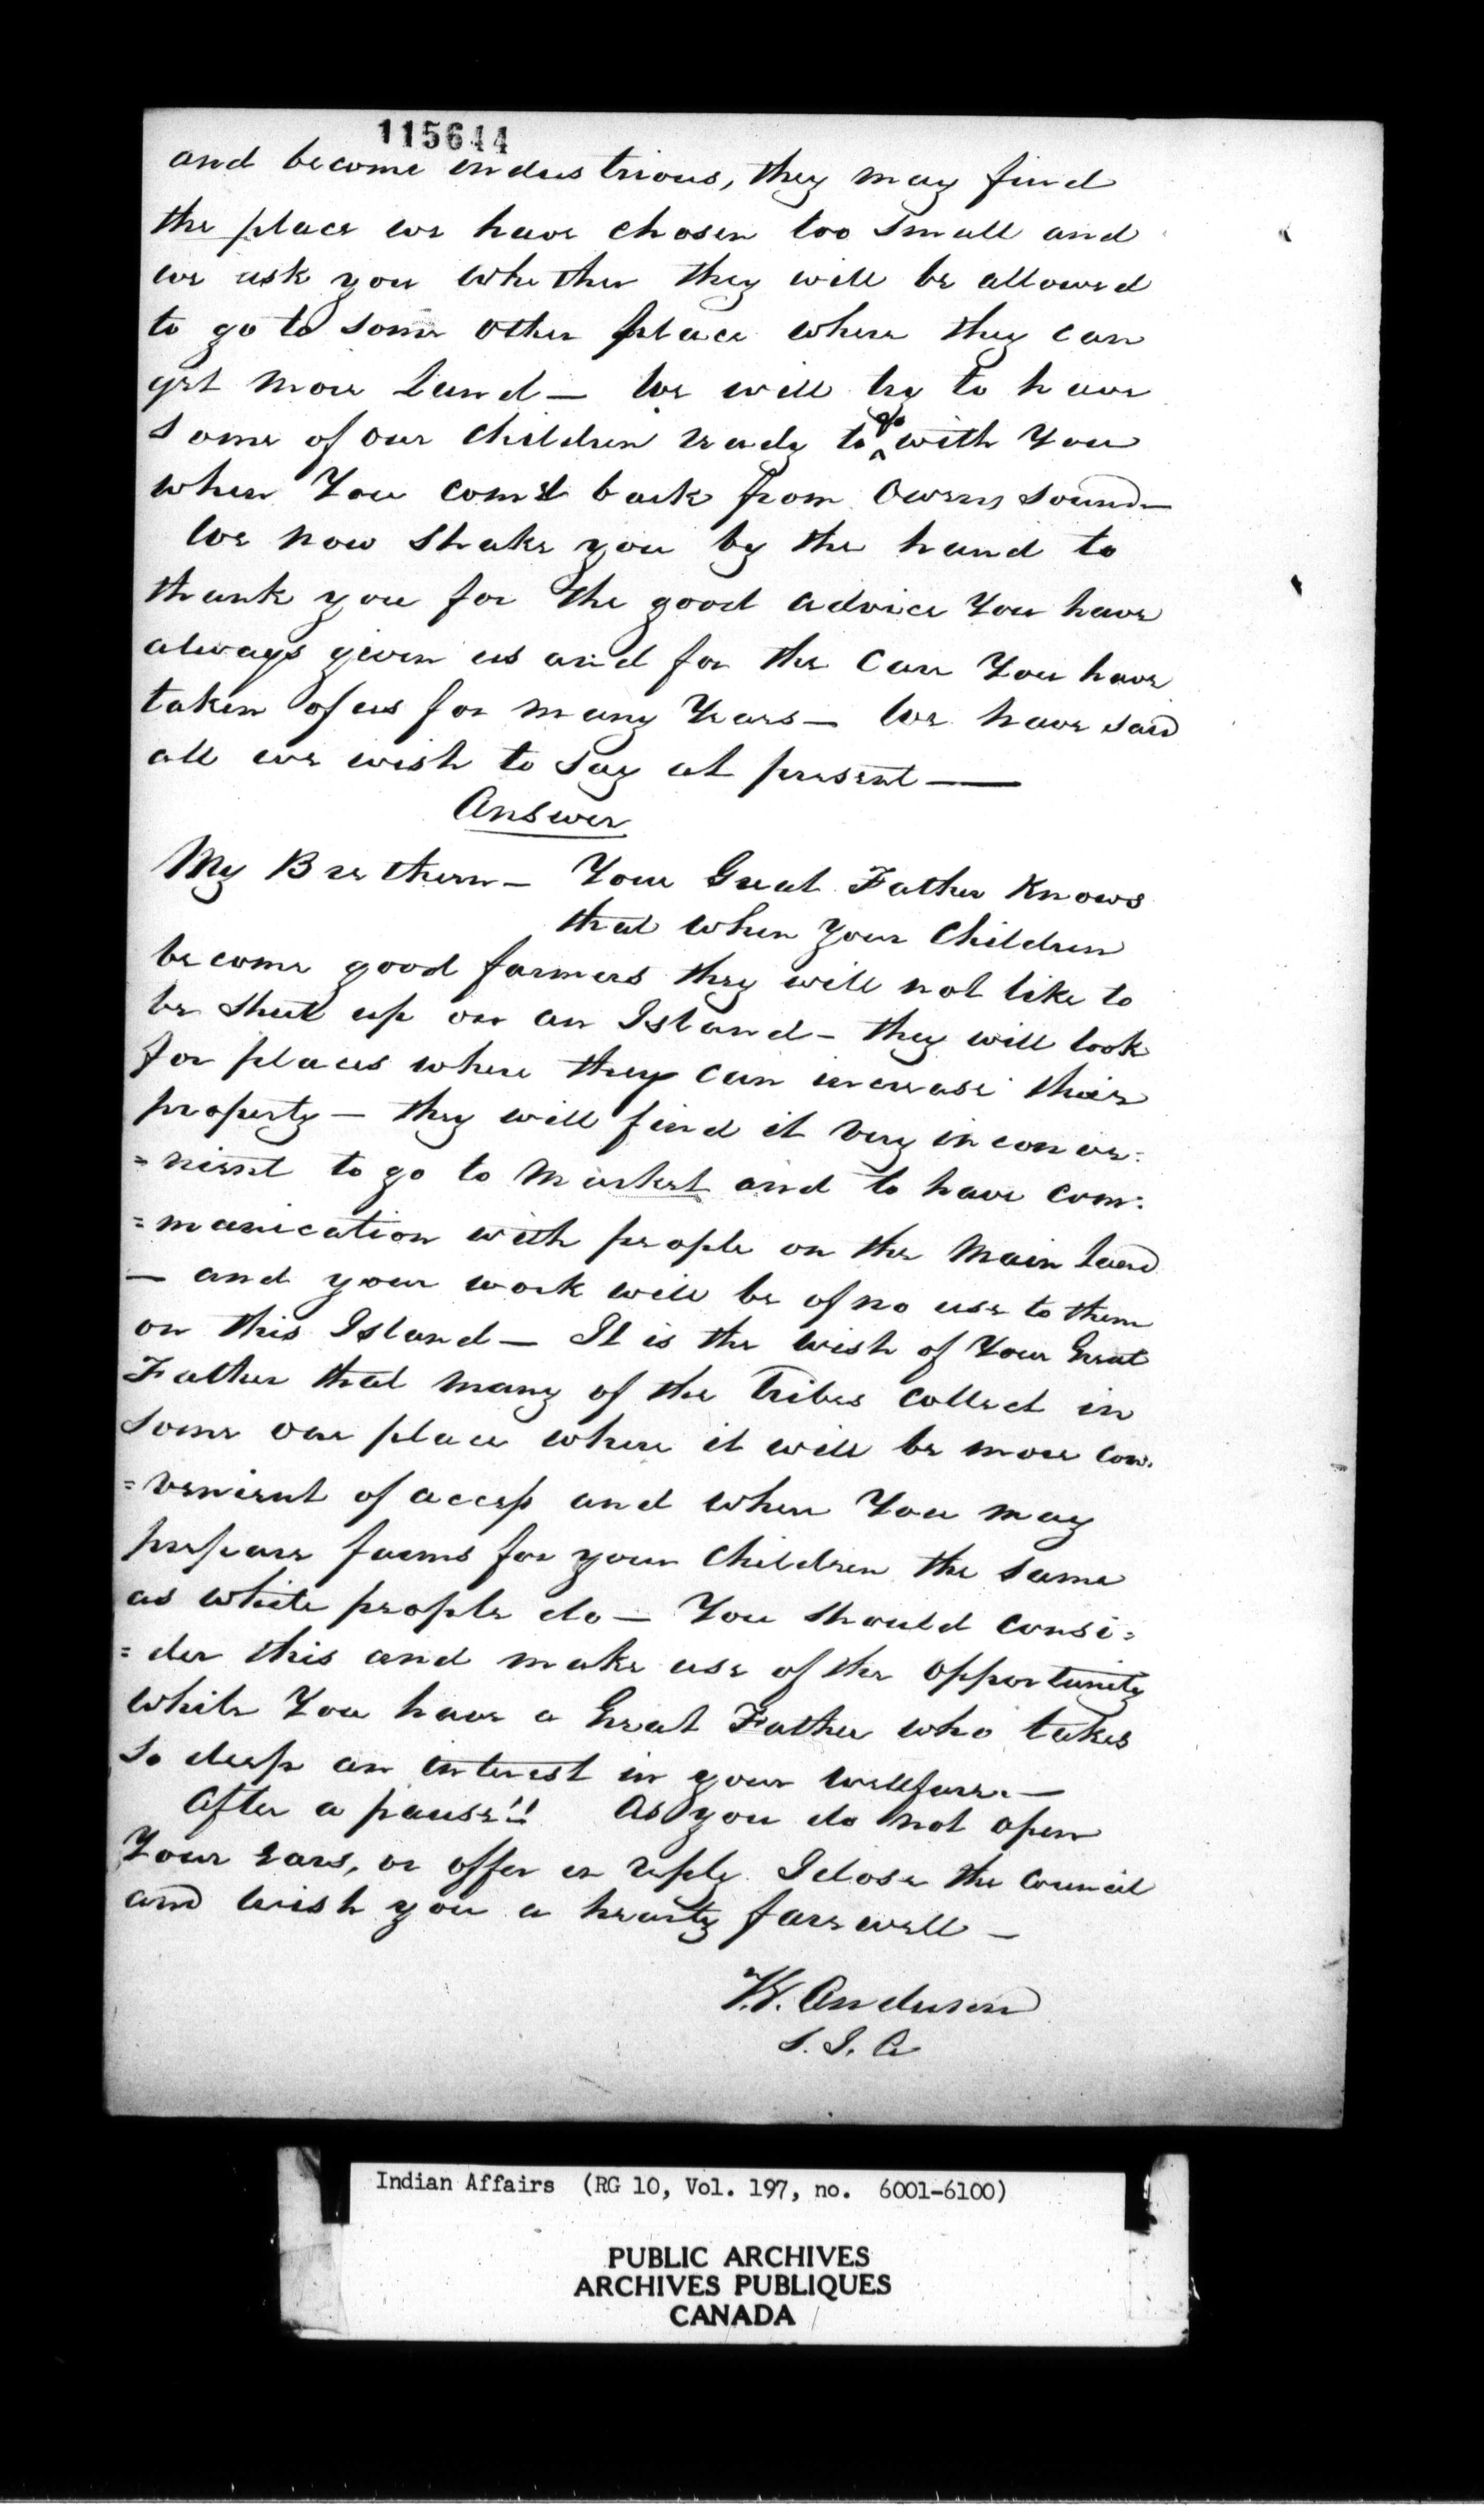 115644
and become industrious, they may find
the place we have chosen too small and
we ask you whether they will be allowed
to go to some other place where they can
get more Land — We will try to have
some of our children ready to go with You
when You come back from Owens Sound —
We now shake you by the hand to
thank you for the good advice You have
always given us and for the care You have
taken of us for many Years — We have said
all we wish to say at present —
Answer
My Brethern — Your Great Father Knows
that when your Children
become good farmers they will not like to
be shut up on an Island — they will look
for places where they can increase their
property — they will find it very inconve:
=nient to go to Market and to have com:
=munication with people on the Main land
— and your work will be of no use to them
on this Island — It is the wish of Your Great
Father that many of the Tribes collect in
some one place where it will be more con.
=venient of access and where You may
prepare farms for your Children the same
as white people do — You should consi:
=der this and make use of the opportunity
while You have a Great Father who takes
so deep an interest in your wellfare. —
After a pause!! As you do not open
Your ears, or offer a reply I close the council
and wish you a hearty farewell —
Anderson
S. I. A
Indian Affairs (RG 10, Vol. 197, no. 6001-6100)
PUBLIC ARCHIVES
ARCHIVES PUBLIQUES
CANADA